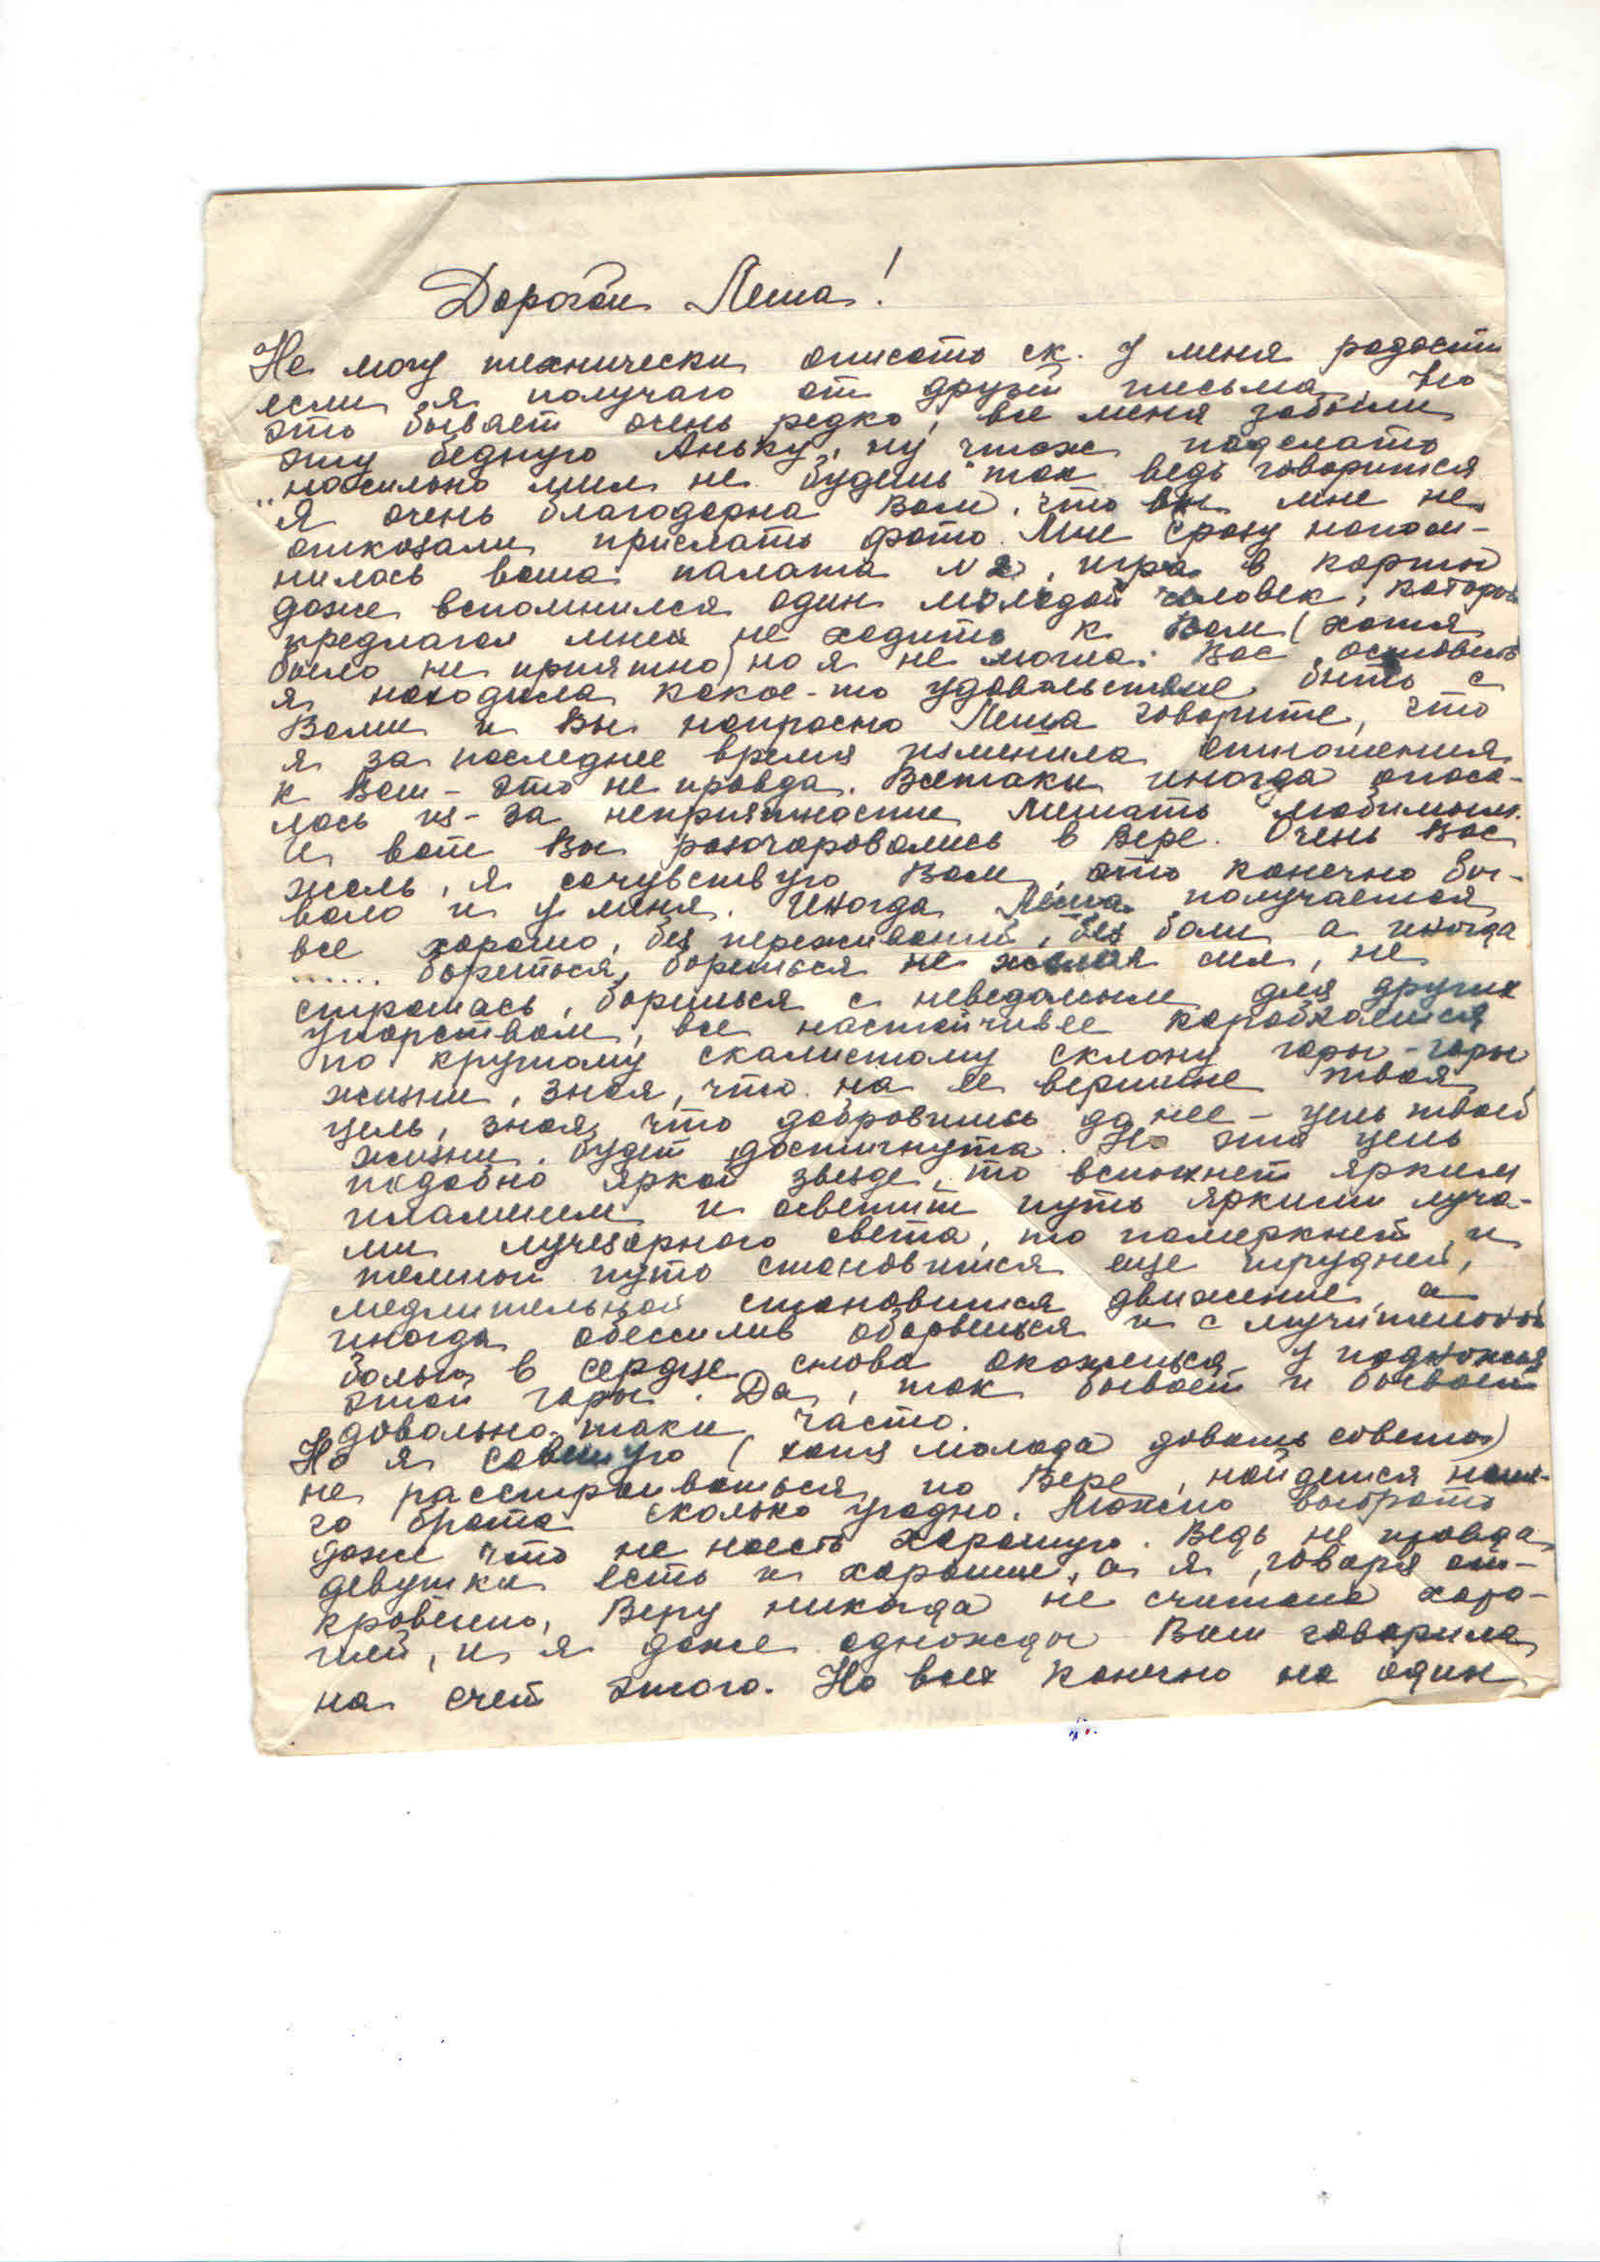 Дорогой Леша!
Не могу технически описать ск. у меня радости
если я получаю от друзей письма. Но
это бывает очень редко, все меня забыли
эту бедную Аньку, ну чтож поделать
"насильно мил не будешь" так ведь говорится
Я очень благодарна Вам, что вы мне не
отказали прислать фото. Мне сразу напом-
нилась ваша палата N 2, игра в карты
даже вспомнился один молодой человек, который
предлагал мне не ходить к Вам (хотя
было не приятно) но я не могла Вас оставить
я находила какое-то удовольствие быть с
Вами и Вы напрасно Леша говорите, что
я за последнее время изменила отношения
к Вам - это не правда. Всетаки иногда опаса-
лась из-за неприятности мешать любимым.
И вот Вы разочаровались в Вере. Очень Вас
жаль, я сочувствую Вам, это конечно бы-
вало и у меня. Иногда Леша получается
все хорошо, без переживаний, без боли а иногда
...... борешься, борешься не жалея сил, не
страшась, борешься с неведомым для других
упорством, все настойчивее карабкаешься
по крутому скалистому склону горы - горы
жизни, зная, что на ее вершине твоя
цель, зная, что добравшись до нее - цель твоей
жизни будет достигнута. Но эта цель
подобно яркой звезде, то вспыхнет ярким
пламенем и осветит путь яркими луча-
ми лучезарного света, то померкнет, и
темный путь становится еще трудней,
медлительной становится движение, а
иногда обессилив оборвешься и с мучительной
болью в сердце снова окажешься у подножья
этой горы. Да, так бывает и бывает
довольно таки часто.
Но я советую (хотя молода давать советы)
не расстраиваться по Вере, найдется наше-
го брата сколько угодно. Можно выбрать
даже что не наесть хорошую. Ведь не правда,
девушки есть и хорошие, а я, говоря от-
кровенно, Веру никогда не считала хоро-
шей, и я даже однажды Вам говорила
на счет этого. Но всех конечно на один